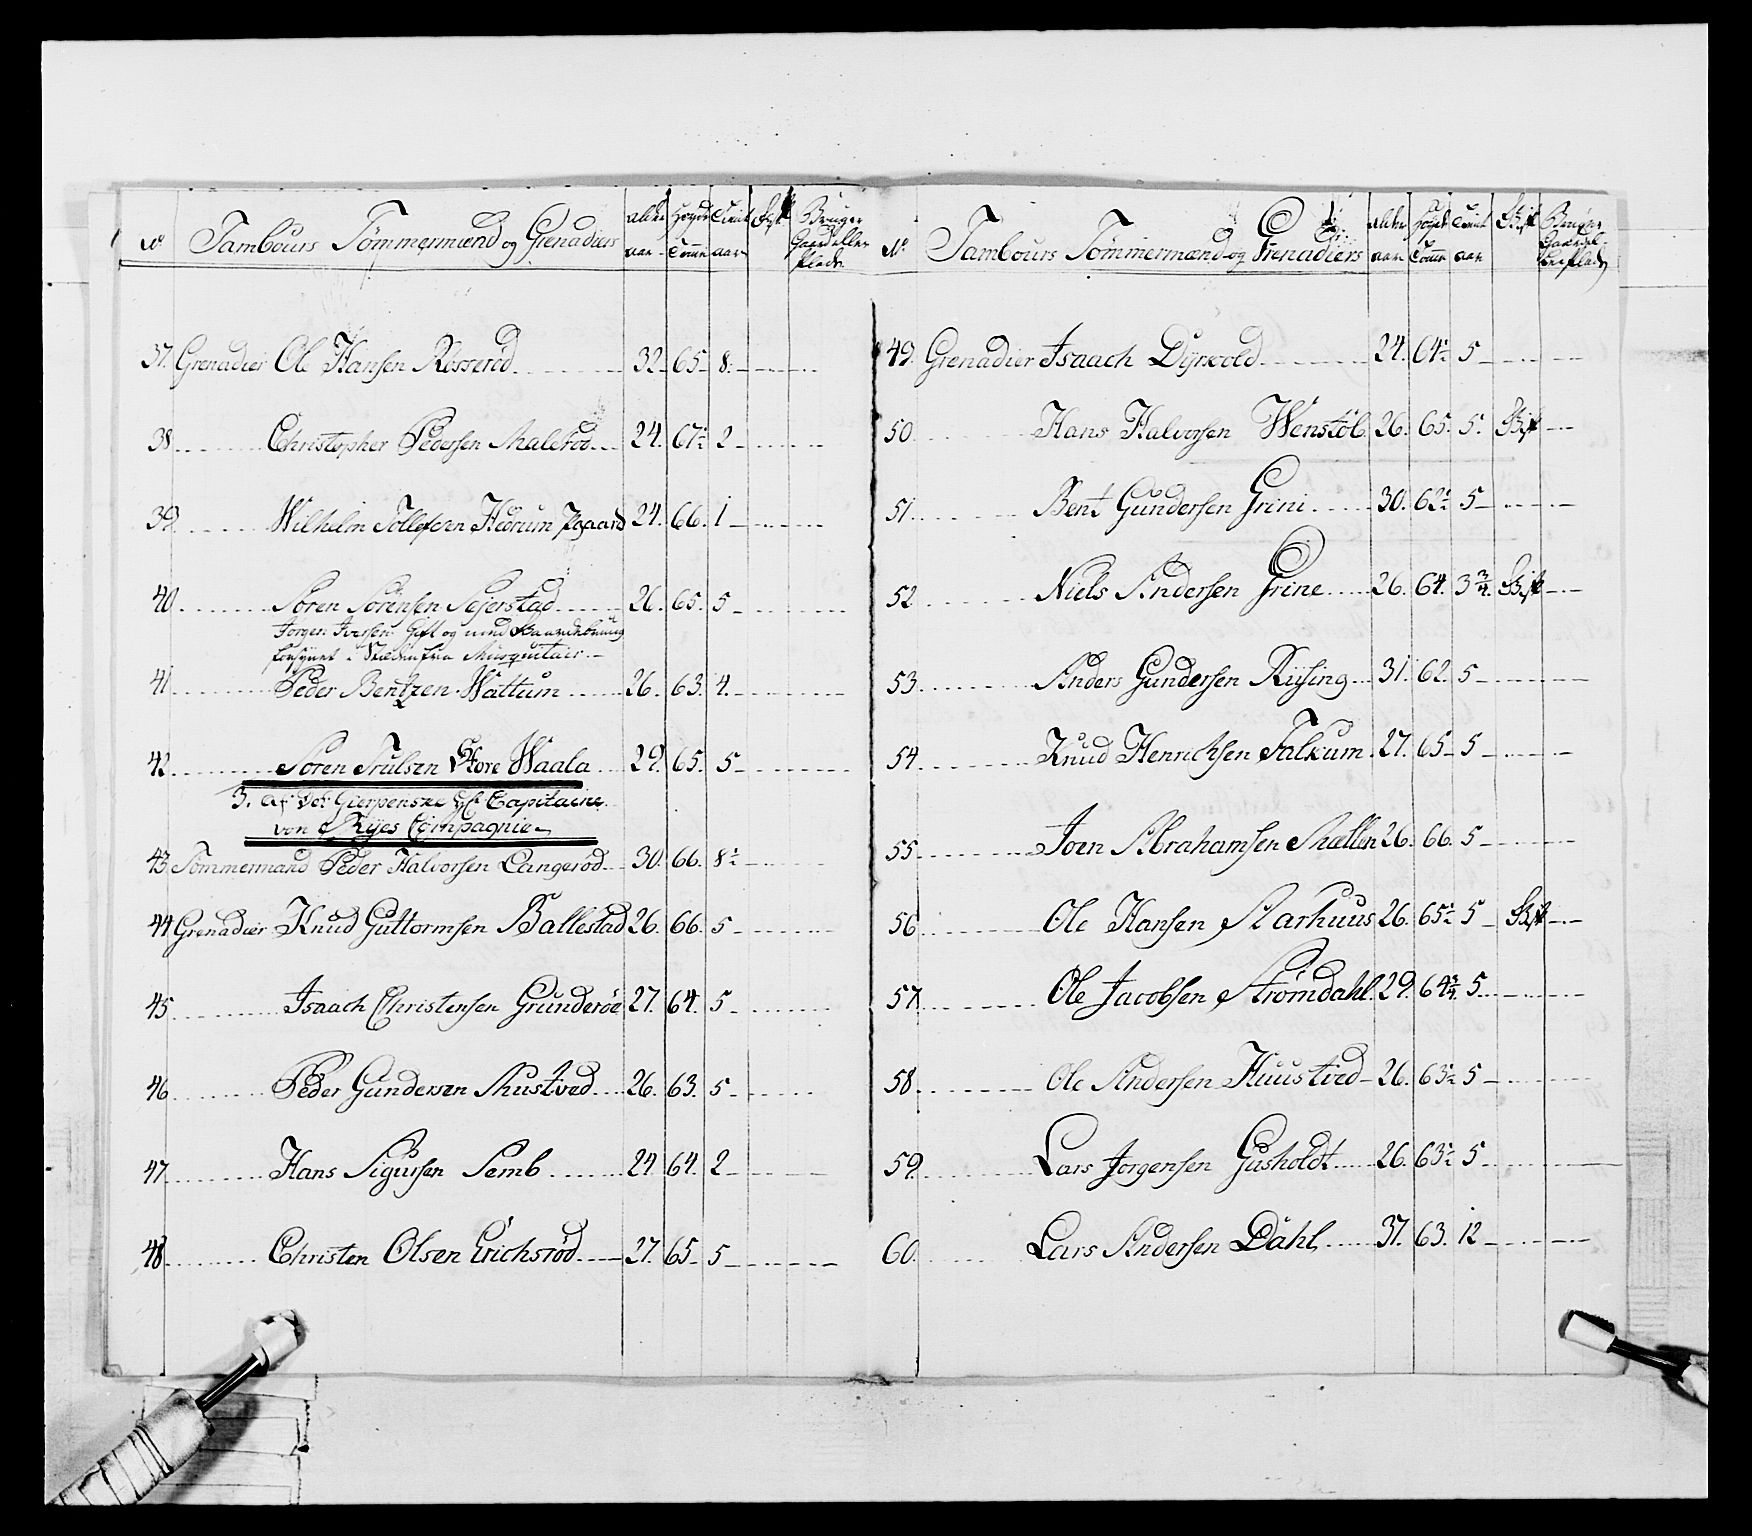 No. Tambours Tømmermænd og Grenadiers Alder aar Høyde Tomr Tient aar Gift Bruger Gaard eller Plads
37. Grenadier Ole Hansen Rosserød 32 65 8
38 Christopher Pedersen Malerød 24. 67½ 2
39 Wilhelm Tollefsen Hedrum Pgaard 24. 66. 1
40 Søren Sørensen Sejerstad 26. 65. 5
Jørgen Iversen Gift og med
forsynet i Stæden fra Musquetair
41 Peder Bentzen Wattum 26. 63. 4.
42 Søren Trulsen Store Waala 29. 65. 5
3. af Det Gierpenske Capitaine
von Rÿes Compagnie
43 Tømmermand Peder Halvorsen Langerød 30. 66. 8½
44 Grenadier Knud Guttormsen Ballestad 26. 66. 5
45 Isaach Christensen Grunderøe 27. 64. 5
46 Peder Gundersen Skustved 26. 63. 5
47 Hans Sigursen Semb 24 64. 2
48 Christen Olsen Erichsrød 27. 65 5
No. Tambours Tømmermænd og Grenadiers Alder aar Høyde Tomr Tient aar Gift Bruger Gaard eller Plads
49. Grenadier Isaach Dyrkold 24. 64½ 5
50 Hans Halvorsen Wenstøb 26. 65. 5. Gift
51 Bent Gundersen Grini 30. 62½ 5
52 Niels Andersen Grine 26. 64. 3¾ Gift
53 Anders Gundersen Riising 31. 62. 5
54 Knud Henrichsen Falkum 27. 65 5
55 Joen Abrahamsen Mællen 26. 66. 5
56 Ole Hansen Aarhuus 26. 65½ 5 Gift
57 Ole Jacobsen Strømdahl 29. 64¾ 5
58 Ole Andersen Huustved 26. 63½ 5
59. Lars Jørgensen Gusholdt 26. 63½ 5
60. Lars Andersen Dahl 37. 63. 12